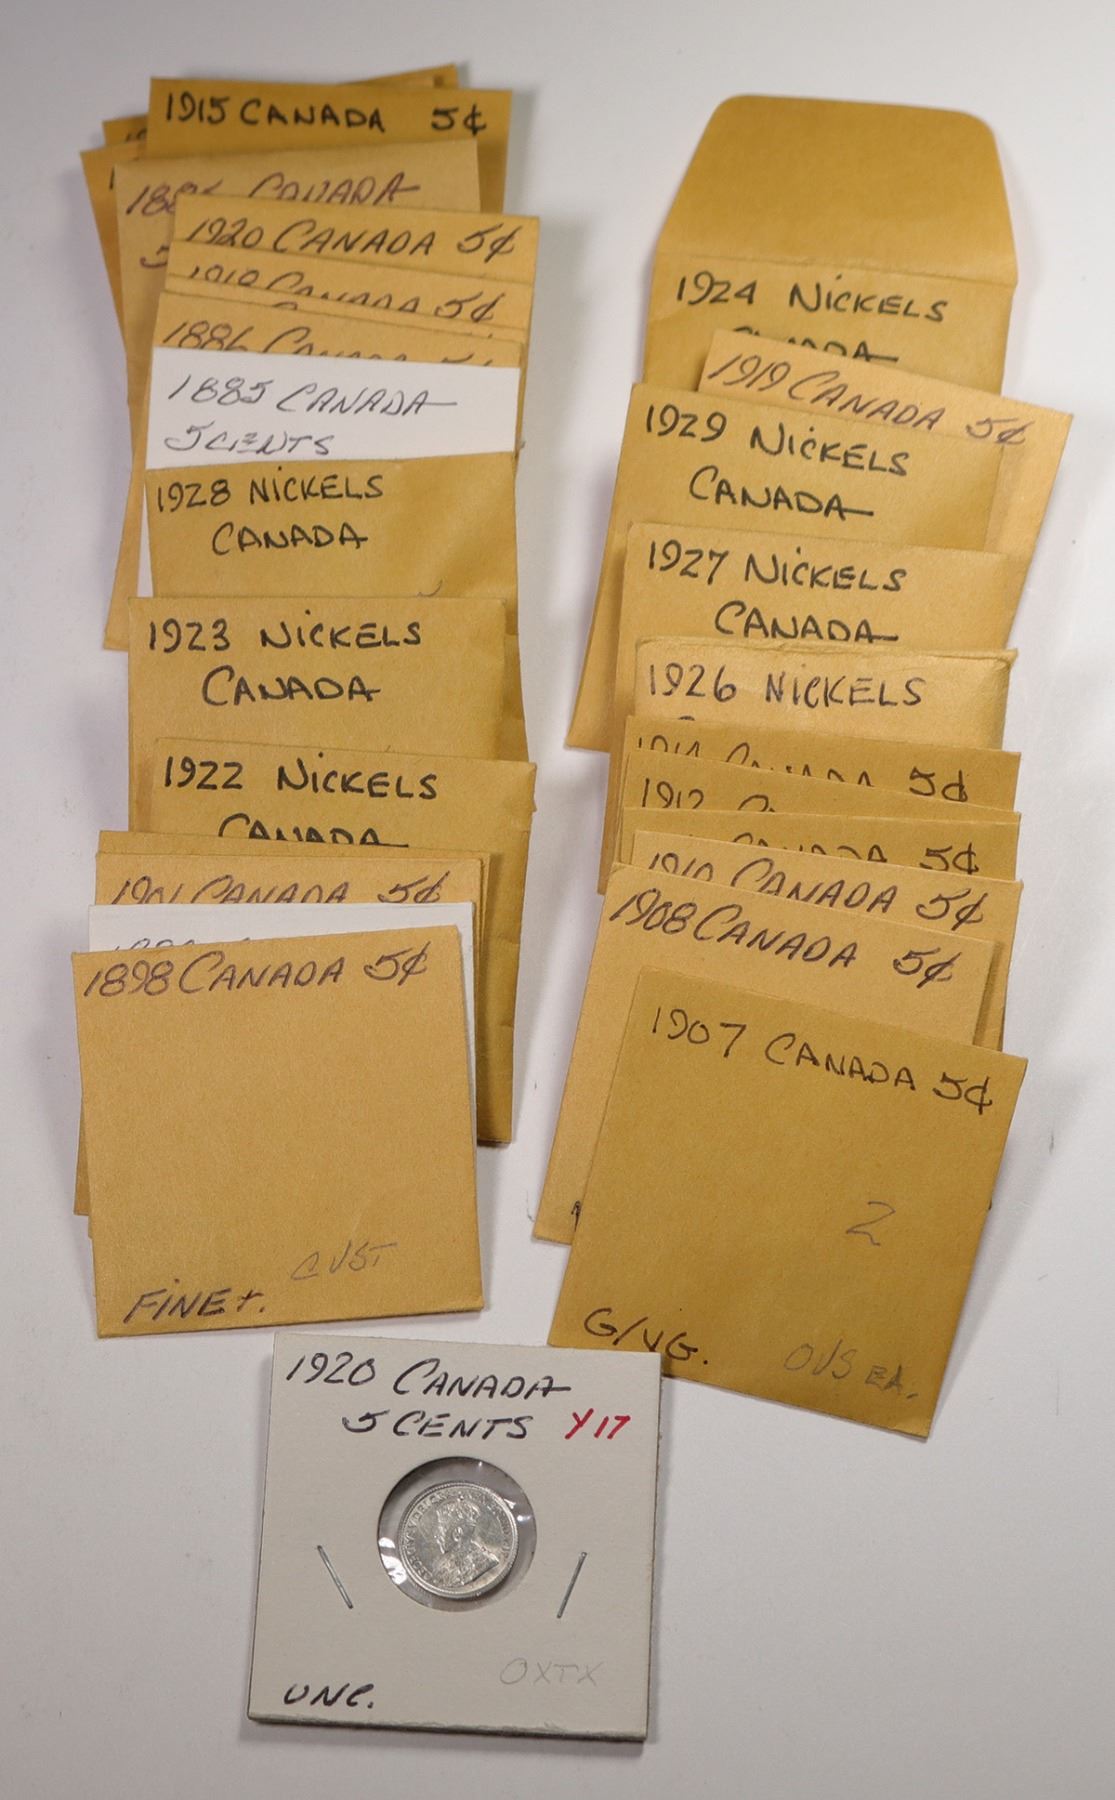 1915 CANADA 5¢
CANADA
5
1920 CANADA 5¢
1919 CANADA 5¢
1886 CANADA 5¢
1885 CANADA
5 CENTS
1928 NICKELS
CANADA
1923 NICKELS
CANADA
1922 NICKELS
CANADA
1901 CANADA 5¢
1898 CANADA 5¢
CVST
FINE+.
1924 NICKELS
CANADA
1919 CANADA 5¢
1929 NICKELS
CANADA
1927 NICKELS
CANADA
1926 NICKELS
1914 CANADA 5¢
1912
CANADA 5¢
1910 CANADA 5¢
1908 CANADA 5¢
1907 CANADA 5¢
2
G/VG.
OVS EA.
1920 CANADA
5 CENTS Y17
OXTX
UNC.